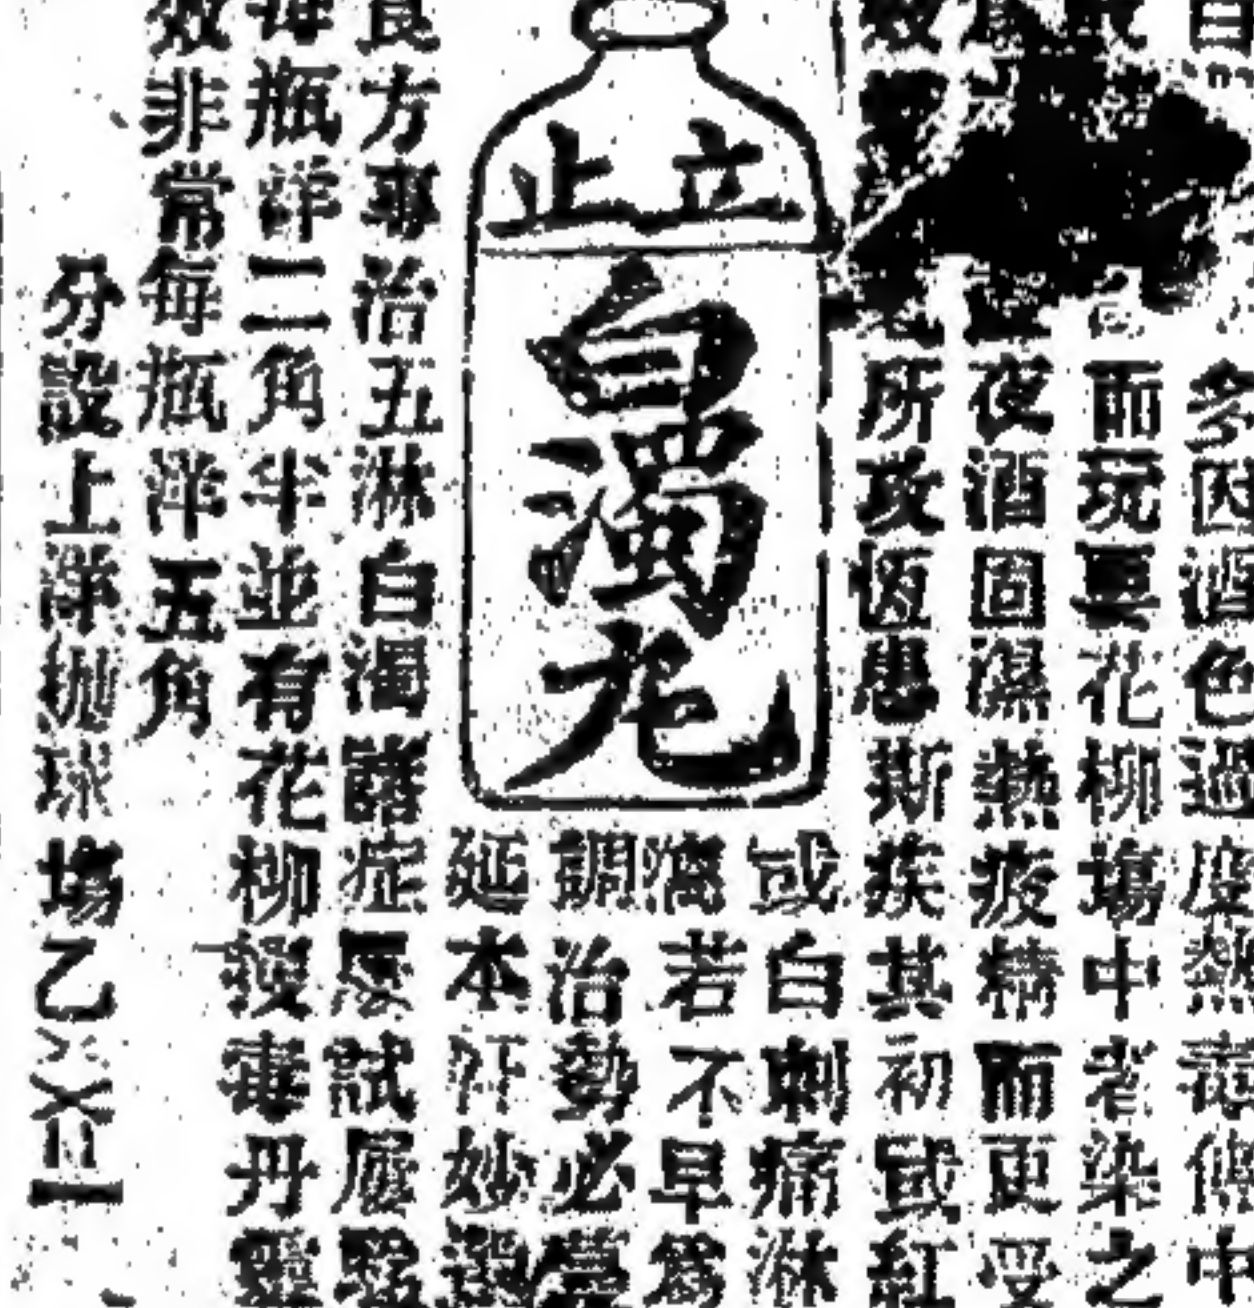 多因酒色過度熱毒傳中
而玩耍花柳塲中者染之
夜酒固濕熱疲精而更受
所攻恆患斯疾其初或紅
立止
白濁丸
或白刺痛淋
漓若不早爲
調治勢必蔓
延本號妙選
良方專治五淋白濁諸症屢試屢騐
每瓶洋二角半並有花柳綬毒丹靈
效非常每瓶洋五角
分設上洋抛球塲乙〤〢一